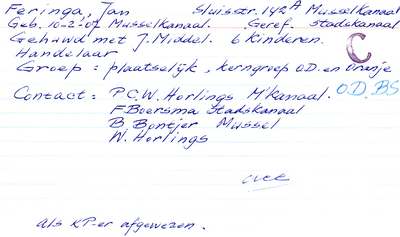 Feringa, Jan Sluisstr. 142A Musselkanaal
Geb. 10-2-07 Musselkanaal. Geref. Stadskanaal
Gehuwd met J. Middel. 6 Kinderen.
Handelaar C
Groep: plaatselijk, kerngroep O.D. en Oranje
Contact: P.C.W. Horlings M'kanaal. O.D. BS
F. Boersma Stadskanaal
B. Bontjer Mussel
W. Horlings
Als KP-er afgewezen.